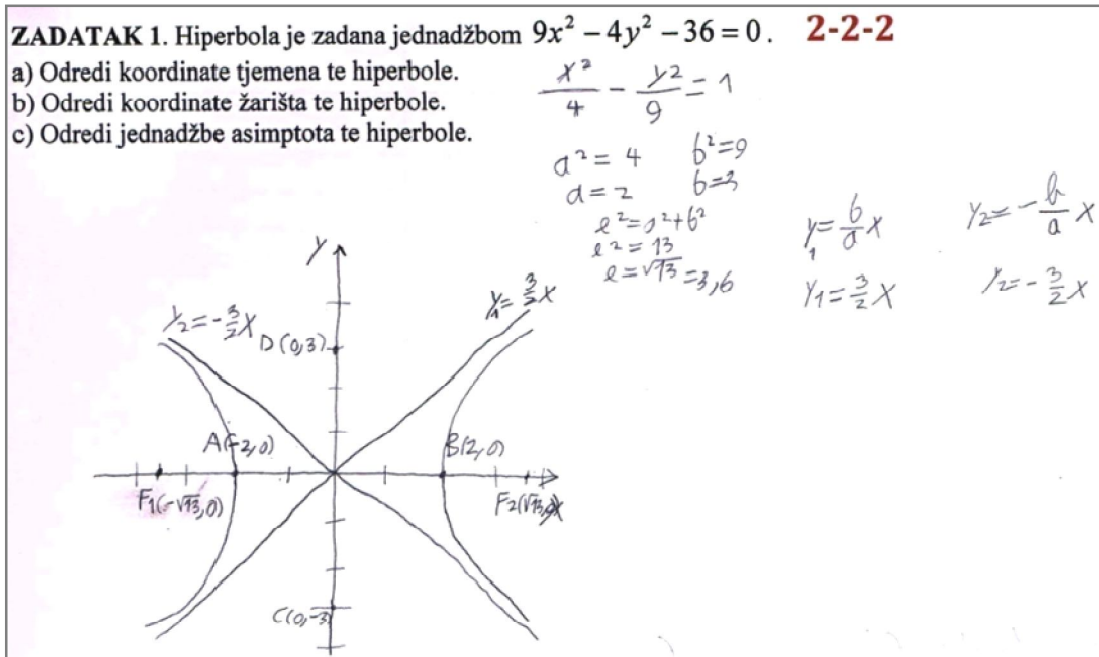 ZADATAK 1. Hiperbola je zadana jednadžbom 9x² − 4y² − 36 = 0. 2-2-2
a) Odredi koordinate tjemena te hiperbole.
b) Odredi koordinate žarišta te hiperbole.
c) Odredi jednadžbe asimptota te hiperbole.
x²/4 − y²/9 = 1
a² = 4 b² = 9
a = 2 b = 3
e² = a² + b²
e² = 13
e = √13 = 3,6
y₁ = b/a x y₂ = − b/a x
y₁ = 3/2 x y₂ = − 3/2 x
y
y₂ = − 3/2 x y₁ = 3/2 x
D(0,3)
A(−2,0) B(2,0)
F₁(−√13,0) F₂(√13,0) x
C(0,−3)